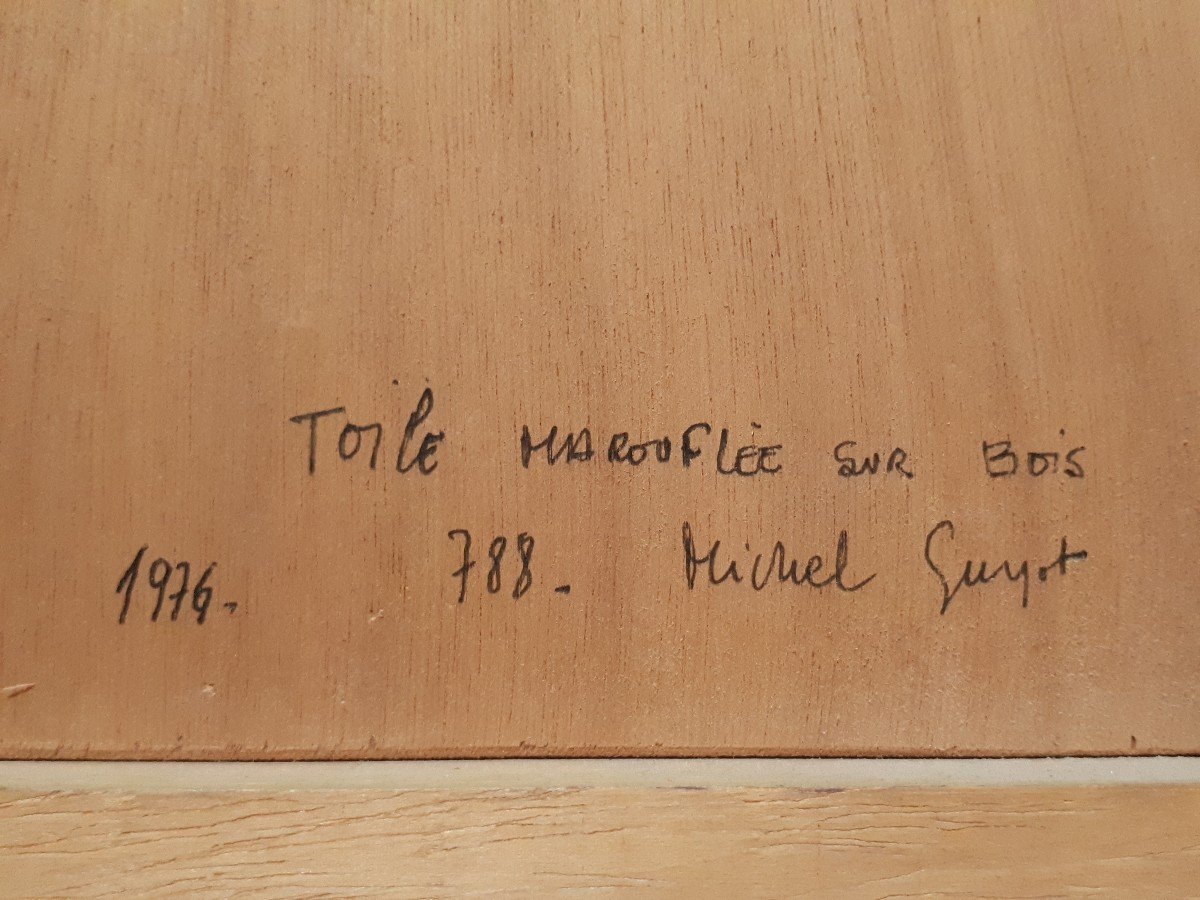 TOILE MAROUFLÉE SUR BOIS
1976. 788. Michel Guyot